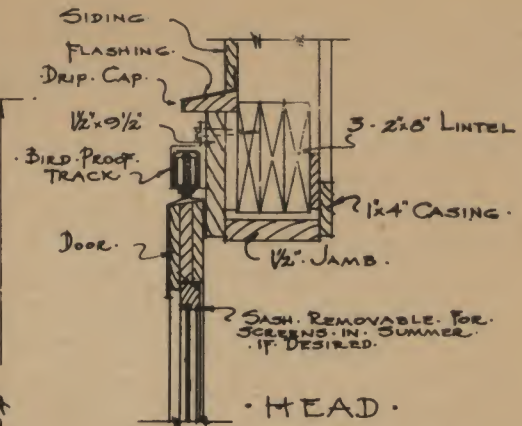 SIDING
FLASHING.
DRIP. CAP.
1½"x9½"
BIRD-PROOF.
TRACK
DOOR.
3-2"x8" LINTEL
1"x4" CASING.
1½" JAMB.
SASH. REMOVABLE. FOR.
SCREENS. IN. SUMMER.
.IF. DESIRED.
.HEAD.